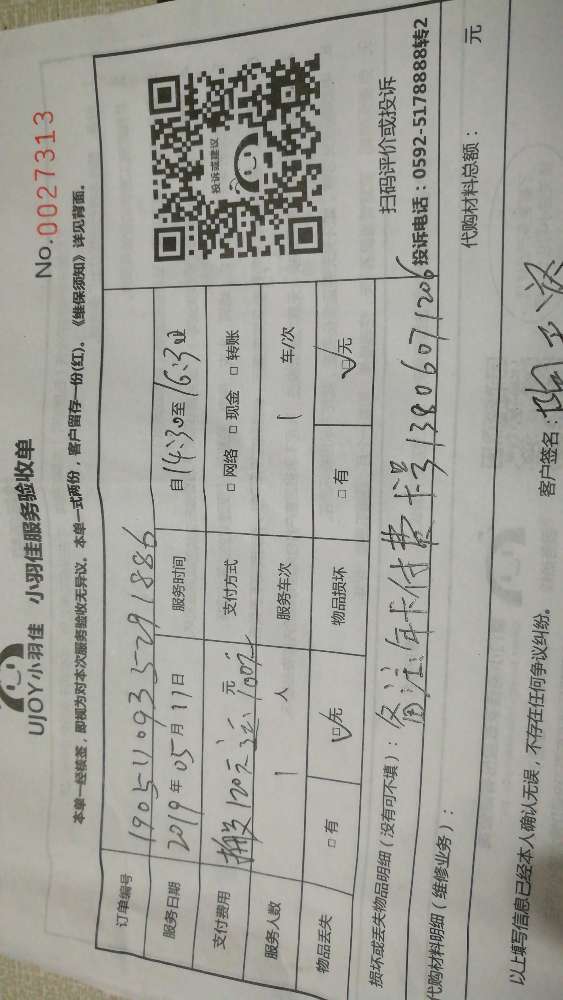 UJOY小羽佳 小羽佳服务验收单
No.0027313
本单一经核签，即视为对本次服务验收无异议。本单一式两份，客户留存一份(红)。《维保须知》详见背面。
订单编号 1905110935291886
服务日期 2019年05月11日 服务时间 自14:30至16:30
支付费用 搬100元运100元 元 支付方式 □网络 □现金 □转账
服务人数 1 人 服务车次 1 车/次
物品丢失 □有 ☑无 物品损坏 □有 ☑无
投诉或建议
扫码评价或投诉
投诉电话：0592-5178888转2
损坏或丢失物品明细（没有可不填）：备注：年卡付费 卡号13806071206
代购材料明细（维修业务）： 代购材料总额： 元
以上填写信息已经本人确认无误，不存在任何争议纠纷。 客户签名：